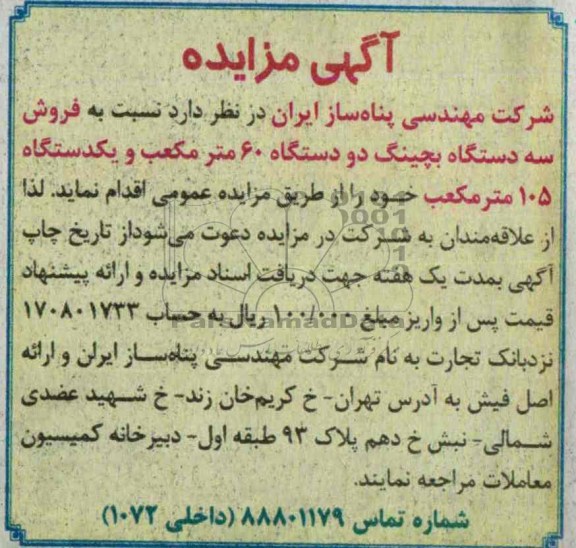 آگهی مزایده
شرکت مهندسی پناه‌ساز ایران در نظر دارد نسبت به فروش
سه دستگاه بچینگ دو دستگاه ۶۰ متر مکعب و یکدستگاه
۱۰۵ مترمکعب خود را از طریق مزایده عمومی اقدام نماید. لذا
از علاقه‌مندان به شرکت در مزایده دعوت می‌شوداز تاریخ چاپ
آگهی بمدت یک هفته جهت دریافت اسناد مزایده و ارائه پیشنهاد
قیمت پس از واریز مبلغ ۱۰۰/۰۰۰ ریال به حساب ۱۷۰۸۰۱۷۳۳
نزدبانک تجارت به نام شرکت مهندسی پناه‌ساز ایران و ارائه
اصل فیش به آدرس تهران- خ کریم‌خان زند- خ شهید عضدی
شمالی- نبش خ دهم پلاک ۹۳ طبقه اول- دبیرخانه کمیسیون
معاملات مراجعه نمایند.
شماره تماس ۸۸۸۰۱۱۷۹ (داخلی ۱۰۷۲)
ParsNamadData